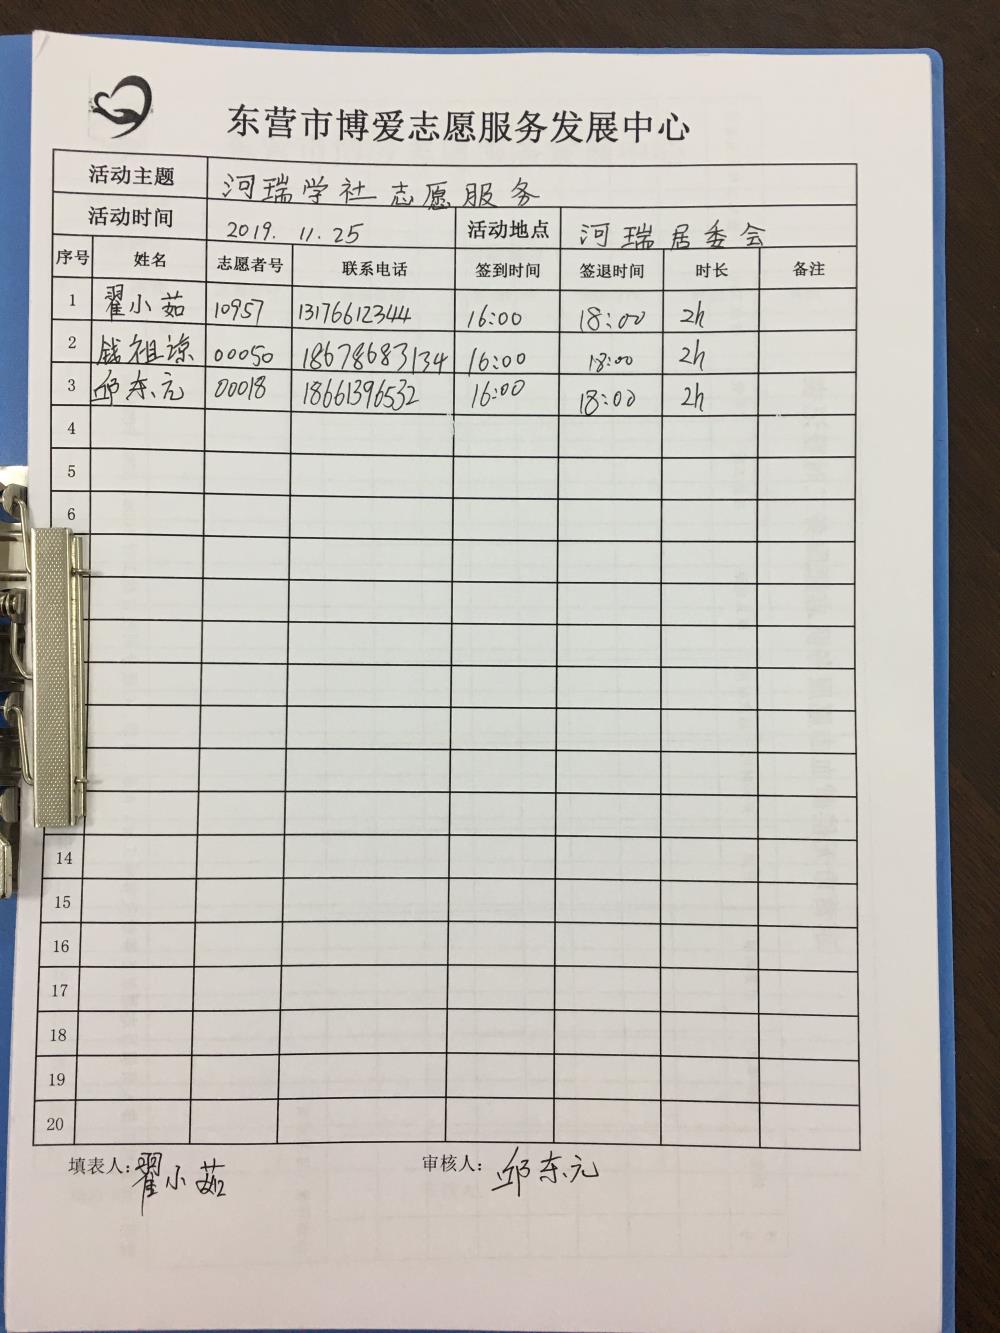 东营市博爱志愿服务发展中心
活动主题 河瑞学社志愿服务
活动时间 2019.11.25 活动地点 河瑞居委会
序号 姓名 志愿者号 联系电话 签到时间 签退时间 时长 备注
1 翟小茹 10957 13176612344 16:00 18:00 2h
2 钱祖谅 00050 18678683134 16:00 18:00 2h
3 邱东元 00018 18661396532 16:00 18:00 2h
4
5
6
14
15
16
17
18
19
20
填表人:翟小茹 审核人:邱东元